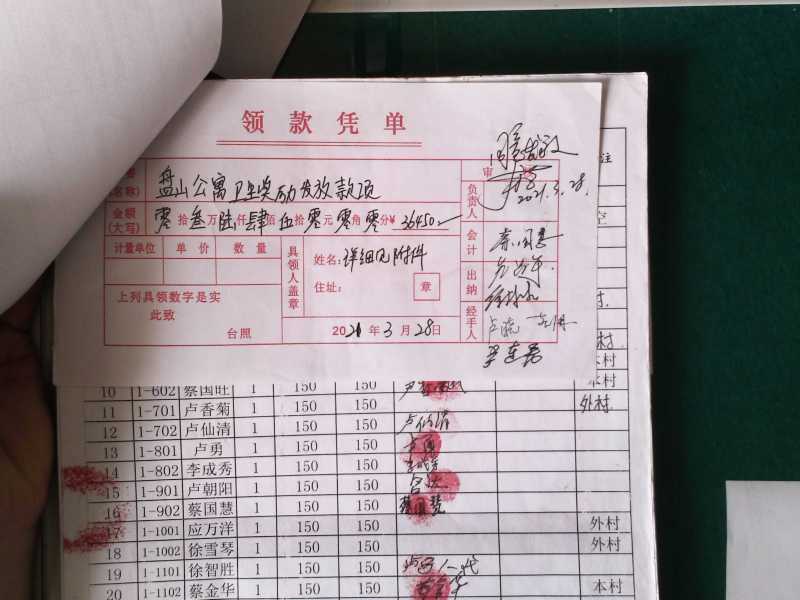 领款凭单
审
盘山公寓卫生奖励发放款项
名称)
金额
(大写) 零拾叁万陆仟肆佰伍拾零元零角零分¥36450
负责人
2021.3.28.
计量单位 单价 数量
具领人盖章
姓名: 详细见附件
住址:
章
会计
出纳
经手人
上列具领数字是实
此致
台照
2021年3月28日
注
村.
本村
10 1-602 蔡国旺 1 150 150
11 1-701 卢香菊 1 150 150 外村.
12 1-702 卢仙清 1 150 150 卢仙清
13 1-801 卢勇 1 150 150 卢勇
14 1-802 李成秀 1 150 150 李成秀
15 1-901 卢朝阳 1 150 150
16 1-902 蔡国慧 1 150 150 蔡国慧
17 1-1001 应万洋 1 150 150 外村
18 1-1002 徐雪琴 1 150 150 外村
19 1-1101 徐智胜 1 150 150
20 1-1102 蔡金华 1 150 150 本村